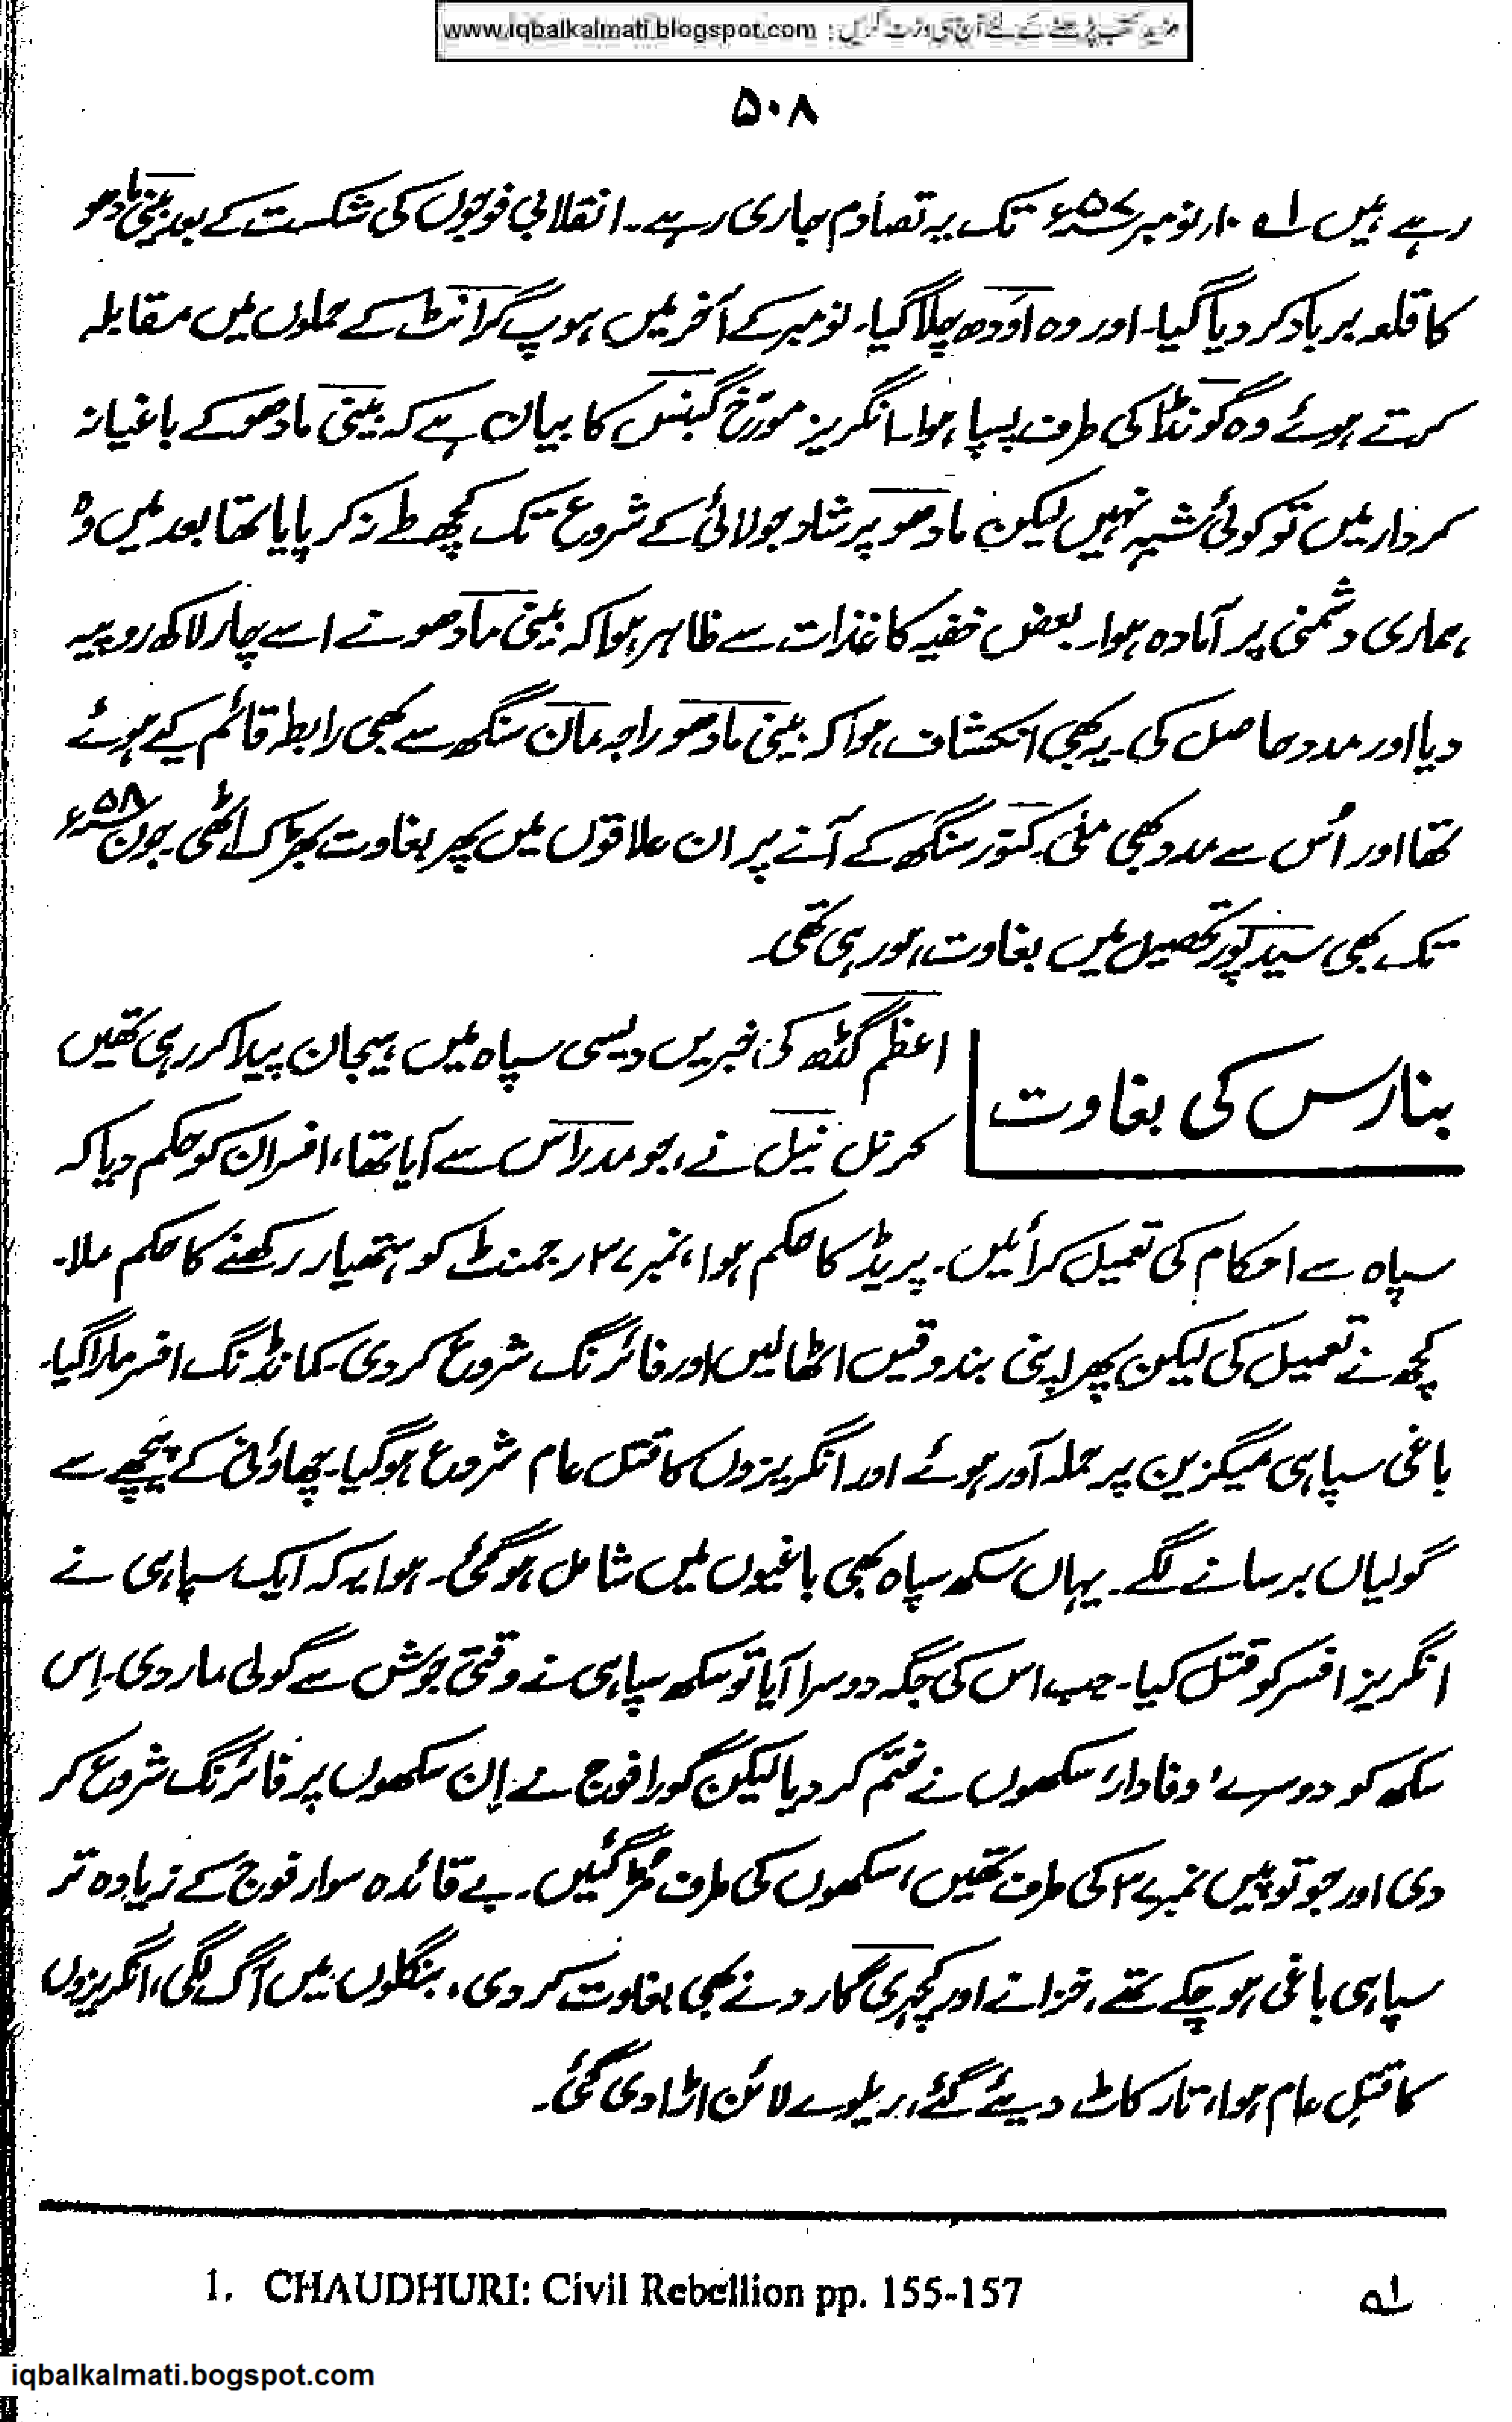 www.iqbalkalmati.blogspot.com : مزید کتب پڑھنے کے لئے آج ہی وزٹ کریں
۵۰۸
رہے ہیں ۱؎ ۱۰ر نومبر ۵۷ء تک یہ تصادم جاری رہے۔ انقلابی فوجوں کی شکست کے بعد بینی مادھو
کا قلعہ برباد کر دیا گیا۔ اور وہ اَوَدھ چلا گیا۔ نومبر کے آخر میں ہوپ گرانٹ کے حملوں میں مقابلہ
کرتے ہوئے وہ گونڈا کی طرف پسپا ہوا۔ انگریز مورّخ گبنس کا بیان ہے کہ بینی مادھو کے باغیانہ
کردار میں تو کوئی شبہ نہیں لیکن مادھو پرشاد جولائی کے شروع تک کچھ طے نہ کر پایا تھا بعد میں وہ
ہماری دشمنی پر آمادہ ہوا۔ بعض خفیہ کاغذات سے ظاہر ہوا کہ بینی مادھو نے اسے چار لاکھ روپیہ
دیا اور مدد حاصل کی۔ یہ بھی انکشاف ہوا کہ بینی مادھو راجہ مان سنگھ سے بھی رابطہ قائم کیے ہوئے
تھا اور اُس سے مدد بھی ملی۔ کنور سنگھ کے آنے پر ان علاقوں میں پھر بغاوت بھڑک اٹھی۔ جون ۵۸ء
تک بھی سیدپور تحصیل میں بغاوت ہو رہی تھی۔
بنارس کی بغاوت
اعظم گڈھ کی خبریں دیسی سپاہ میں ہیجان پیدا کر رہی تھیں
کرنل نیل نے، جو مدراس سے آیا تھا، افسران کو حکم دیا کہ
سپاہ سے احکام کی تعمیل کرائیں۔ پریڈ کا حکم ہوا، نمبر ۳۷ رجمنٹ کو ہتھیار رکھنے کا حکم ملا۔
کچھ نے تعمیل کی لیکن پھر اپنی بندوقیں اٹھالیں اور فائرنگ شروع کر دی۔ کمانڈنگ افسر مارا گیا۔
باغی سپاہی میگزین پر حملہ آور ہوئے اور انگریزوں کا قتل عام شروع ہو گیا۔ چھاؤنی کے پیچھے سے
گولیاں برسانے لگے۔ یہاں سکھ سپاہ بھی باغیوں میں شامل ہو گئی۔ ہوا یہ کہ ایک سپاہی نے
انگریز افسر کو قتل کیا۔ جب اس کی جگہ دوسرا آیا تو سکھ سپاہی نے وقتی جوش سے گولی مار دی۔ اِس
سکھ کو دوسرے 'وفادار' سکھوں نے ختم کر دیا لیکن گورا فوج نے اِن سکھوں پر فائرنگ شروع کر
دی اور جو توپیں نمبر ۳۷ کی طرف تھیں، سکھوں کی طرف مڑ گئیں۔ بے قائدہ سوار فوج کے زیادہ تر
سپاہی باغی ہو چکے تھے، خزانے اور کچہری گارد نے بھی بغاوت کر دی۔ بنگلوں میں آگ لگی، انگریزوں
کا قتلِ عام ہوا، تار کاٹ دیئے گئے، ریلوے لائن اڑا دی گئی۔
۱؎ 1. CHAUDHURI: Civil Rebellion pp. 155-157
iqbalkalmati.bogspot.com